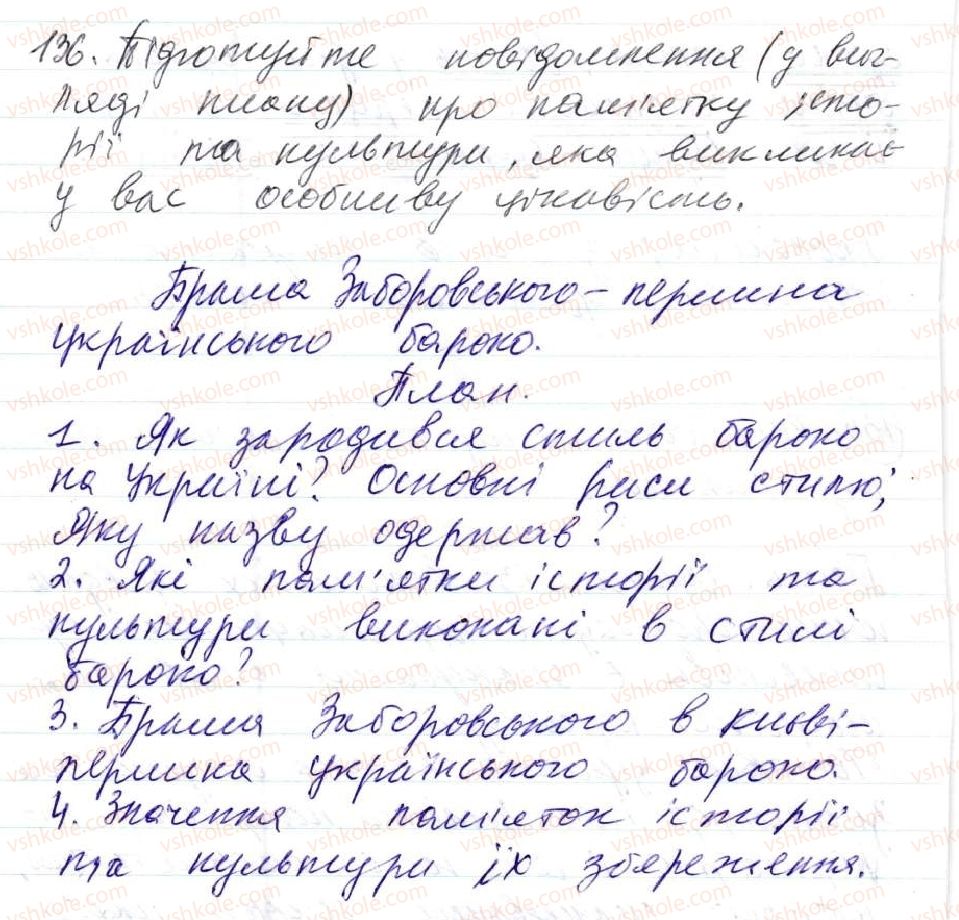 136. Підготуйте повідомлення (у виг-
ляді плану) про пам'ятку істо-
рії та культури, яка викликає
у вас особливу цікавість.
Брама Заборовського - перлина
українського бароко.
План.
1. Як зародився стиль бароко
на Україні? Основні риси стилю;
Яку назву одержав?
2. Які пам'ятки історії та
культури виконані в стилі
бароко?
3. Брама Заборовського в Києві -
перлина українського бароко.
4. Значення пам'яток історії
та культури їх збереження.